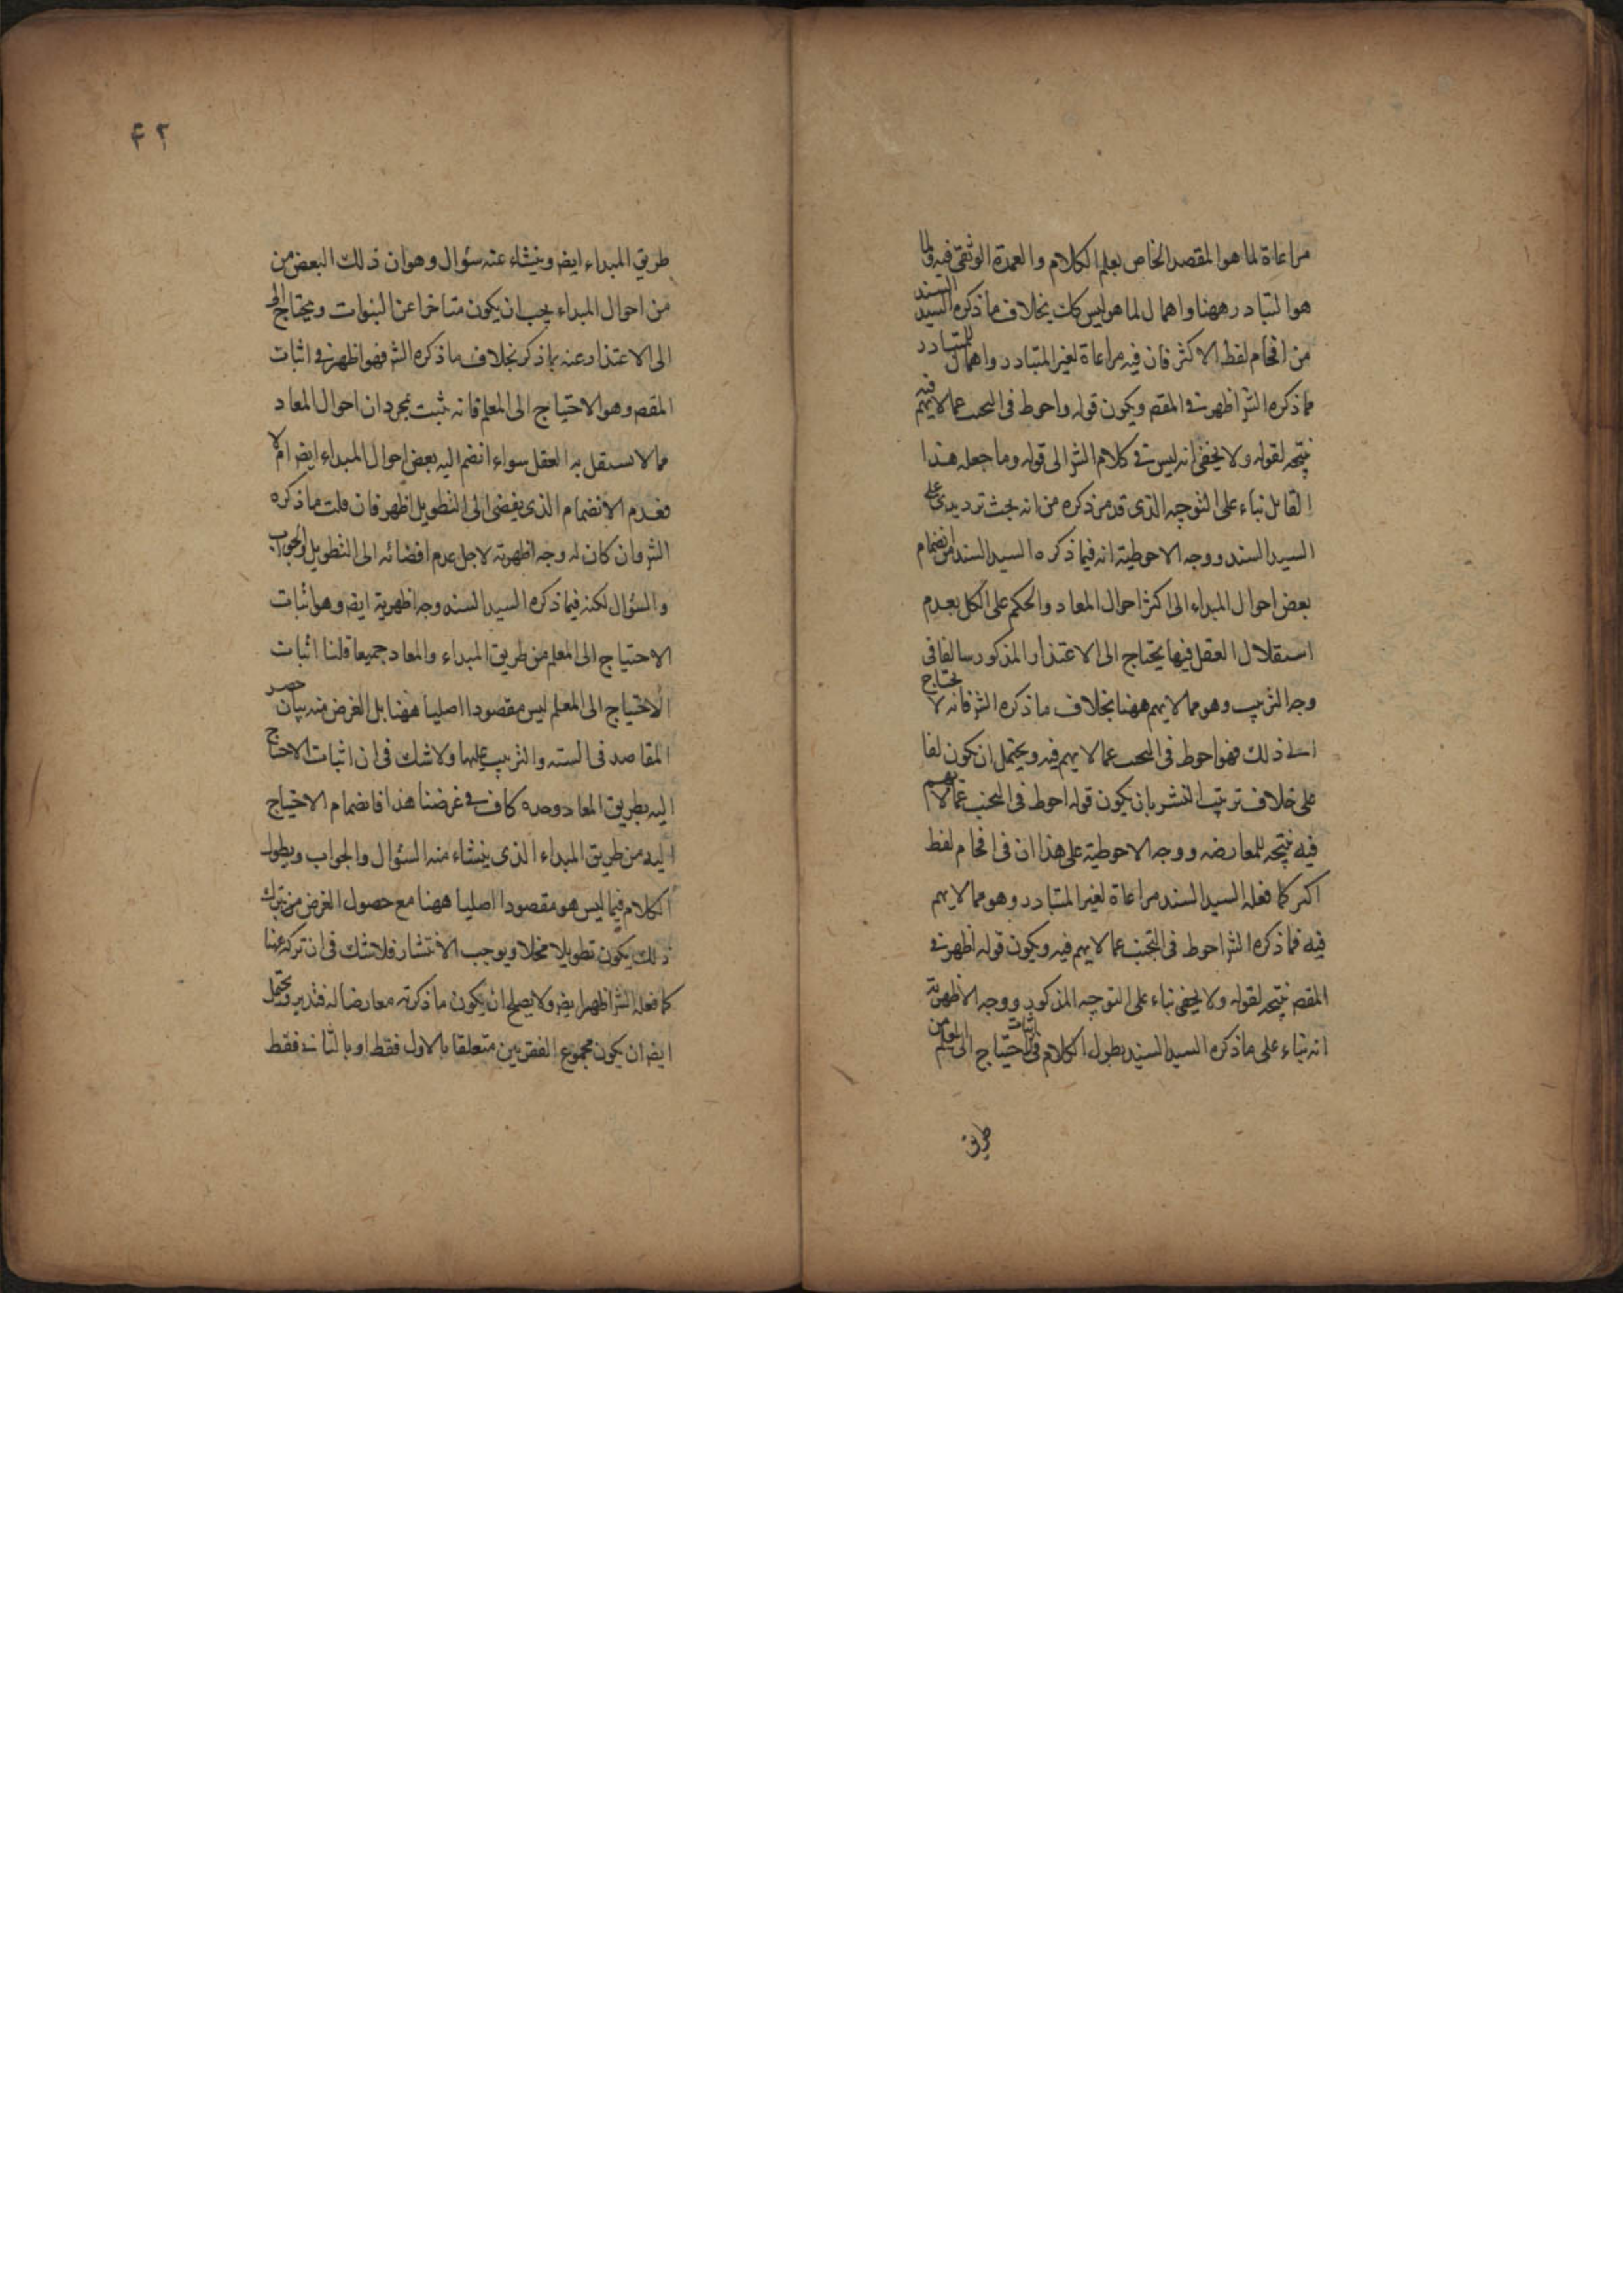 مراعاة لما هو المقصد الخاص بعلم الكلام والعمدة الوثقى فيه ولما
هو المتبادر ههنا واهمال لما هو ليس كك بخلاف ما ذكره السيد السند
من اقحام لفظ الاكثر فان فيه مراعاة لغير المتبادر واهمال للمتبادر
فما ذكره الشر اظهر في المقصـ ويكون قوله واحوط في التجنب عما لا يهم فيه
نتيجة لقوله ولا يخفى انه ليس في كلام الشر الى قوله وما جعله هذا
القابل بناء على التوجيه الذى قد مر ذكره من انه بحث ترديدى على
السيد السند ووجه الاحوطية انه فيما ذكره السيد السند من انضمام
بعض احوال المبداء الى اكثر احوال المعاد والحكم على الكل بعدم
استقلال العقل فيها يحتاج الى الاعتذار المذكور سالفا في
وجه الترتيب وهو مما لا يهم ههنا بخلاف ما ذكره الشر فانه لا يحتاج
الى ذلك فهو احوط في التجنب عما لا يهم فيه ويحتمل ان يكون لفا
على خلاف ترتيب النشر بان يكون قوله احوط في التجنب عما لا يهم
فيه نتيجة للمعارضه ووجه الاحوطية على هذا ان في اقحام لفظ
اكثر كما فعله السيد السند مراعاة لغير المتبادر وهو مما لا يهم
فيه فما ذكره الشر احوط في التجنب عما لا يهم فيه ويكون قوله اظهر في
المقصـ نتيجه لقوله ولا يخفى بناء على التوجيه المذكور ووجه الاظهرية
انه بناء على ما ذكره السيد السند يطول الكلام في اثبات الاحتياج الى المعلم من
طريق
۴۲
طريق المبداء ايضـ وينشاء عنه سئوال وهو ان ذلك البعض من
من احوال المبداء يجب ان يكون متاخرا عن النبوات ويحتاج الى
الى الاعتذار عنه بما ذكر بخلاف ما ذكره الشر فهو اظهر في اثبات
المقصـ وهو الاحتياج الى المعلم فانه يثبت بمجرد ان احوال المعاد
مما لا يستقل به العقل سواء انضم اليه بعض احوال المبداء ايضـ ام لا
فعدم الانضمام الذى يفضى الى التطويل اظهر فان قلت ما ذكره
الشر وان كان له وجه اظهرية لاجل عدم افضائه الى التطويل والجواب
والسئوال لكنه فيما ذكره السيد السند وجه اظهرية ايضـ وهو اثبات
الاحتياج الى المعلم من طريق المبداء والمعاد جميعا قلنا اثبات
الاحتياج الى المعلم ليس مقصودا اصليا ههنا بل الغرض منه بيان حصر
المقاصد في الستة والترتيب عليها ولا شك في ان اثبات الاحتياج
اليه بطريق المعاد وحده كاف في غرضنا هذا فانضمام الاحتياج
اليه من طريق المبداء الذى ينشاء منه السئوال والجواب ويطول
الكلام فيما ليس هو مقصودا اصليا ههنا مع حصول الغرض من ترك
ذلك يكون تطويلا مخلا ويوجب الانتشار فلا شك في ان تركه عنا
كما فعله الشر اظهر ايضـ ولا يصلح ان يكون ما ذكرته معارضا له فتدبر ويحتمل
ايضـ ان يكون مجموع الفقرتين متعلقا بالاول فقط او بالثاني فقط